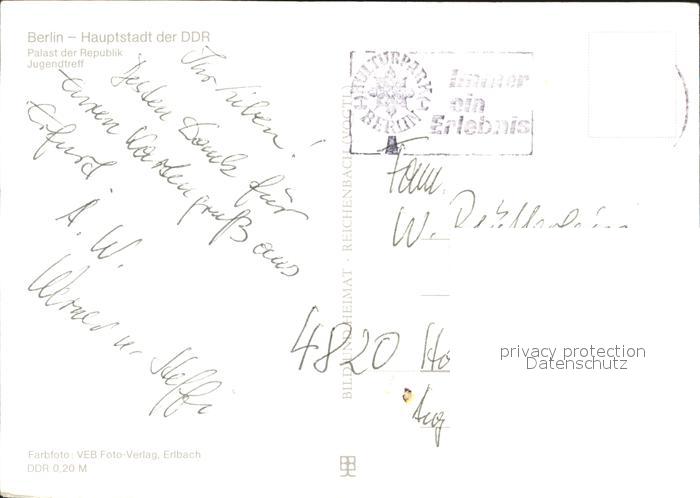 Berlin – Hauptstadt der DDR
Palast der Republik
Jugendtreff
Ihr Lieben!
Besten Dank für
Euren Kartengruß aus
Erfurt
A. W.
Werner u. Steffi
KULTURPARK
BERLIN
Immer
ein
Erlebnis
BILD UND HEIMAT · REICHENBACH (VOGTL)
Fam.
W.
4820 Ho
Aug
privacy protection
Datenschutz
Farbfoto: VEB Foto-Verlag, Erlbach
DDR 0,20 M